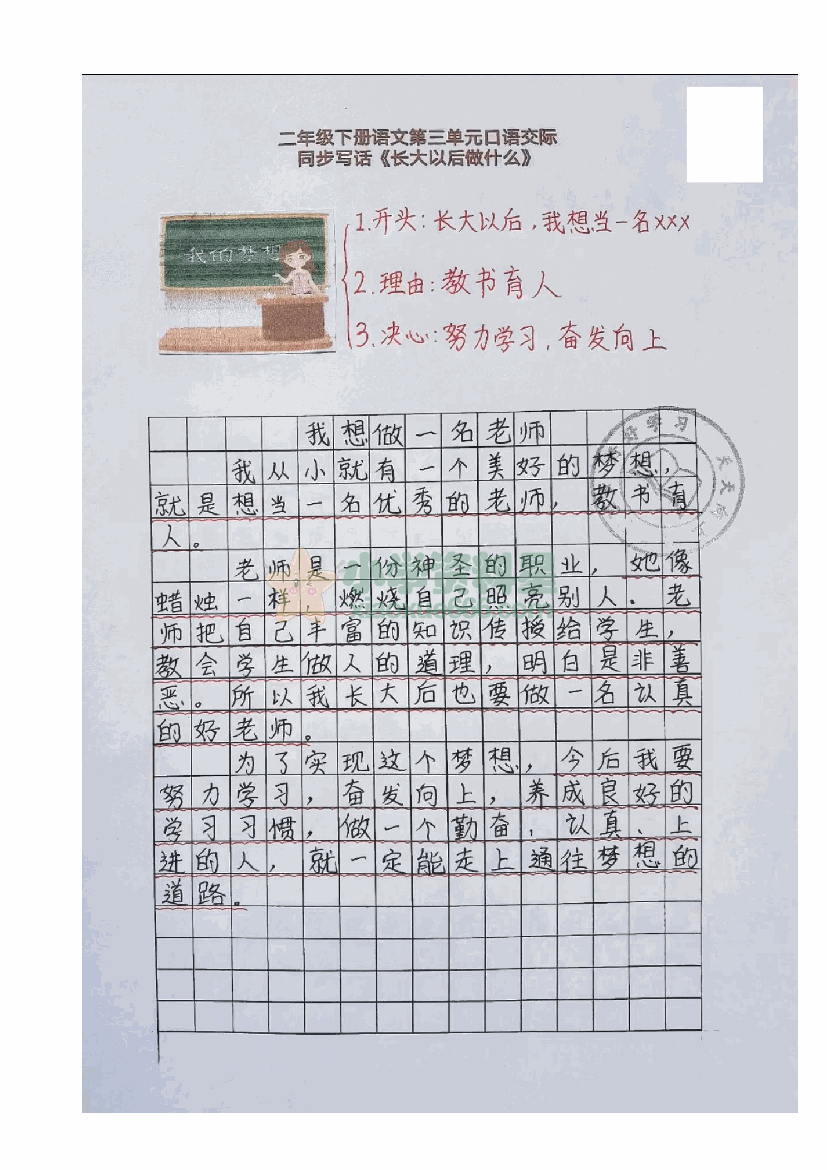 二年级下册语文第三单元口语交际
同步写话《长大以后做什么》
我的梦想
1.开头:长大以后,我想当一名xxx
2.理由:教书育人
3.决心:努力学习,奋发向上
我想做一名老师
我从小就有一个美好的梦想,
就是想当一名优秀的老师,教书育
人。
老师是一份神圣的职业,她像
蜡烛一样,燃烧自己照亮别人.老
师把自己丰富的知识传授给学生,
教会学生做人的道理,明白是非善
恶。所以我长大后也要做一名认真
的好老师。
为了实现这个梦想,今后我要
努力学习,奋发向上,养成良好的
学习习惯,做一个勤奋、认真、上
进的人,就一定能走上通往梦想的
道路。
好好学习 天天向上